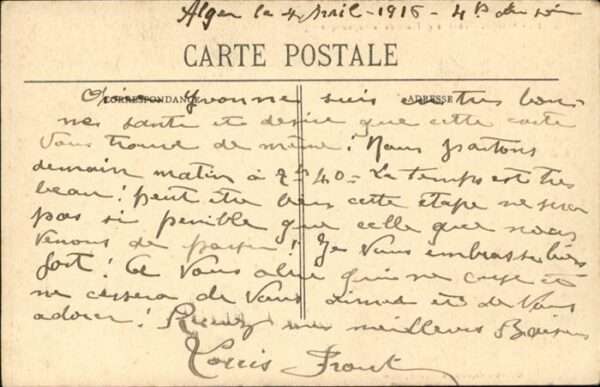 Alger le 4 Avril - 1916 - 4h du soir
CARTE POSTALE
CORRESPONDANCE ADRESSE
Yvonne suis en très bon-
ne santé et désire que cette carte
Vous trouve de même! Nous partons
demain matin à 7h40 = Le temps est très
beau! peut être bien cette étape ne sera
pas si penible que celle que nous
Venons de passer! Je Vous embrasse bien
fort! Ce Vous qui ne cesse et
ne cessera de Vous aimer et de Vous
adorer! Recevez mes meilleurs Baisers